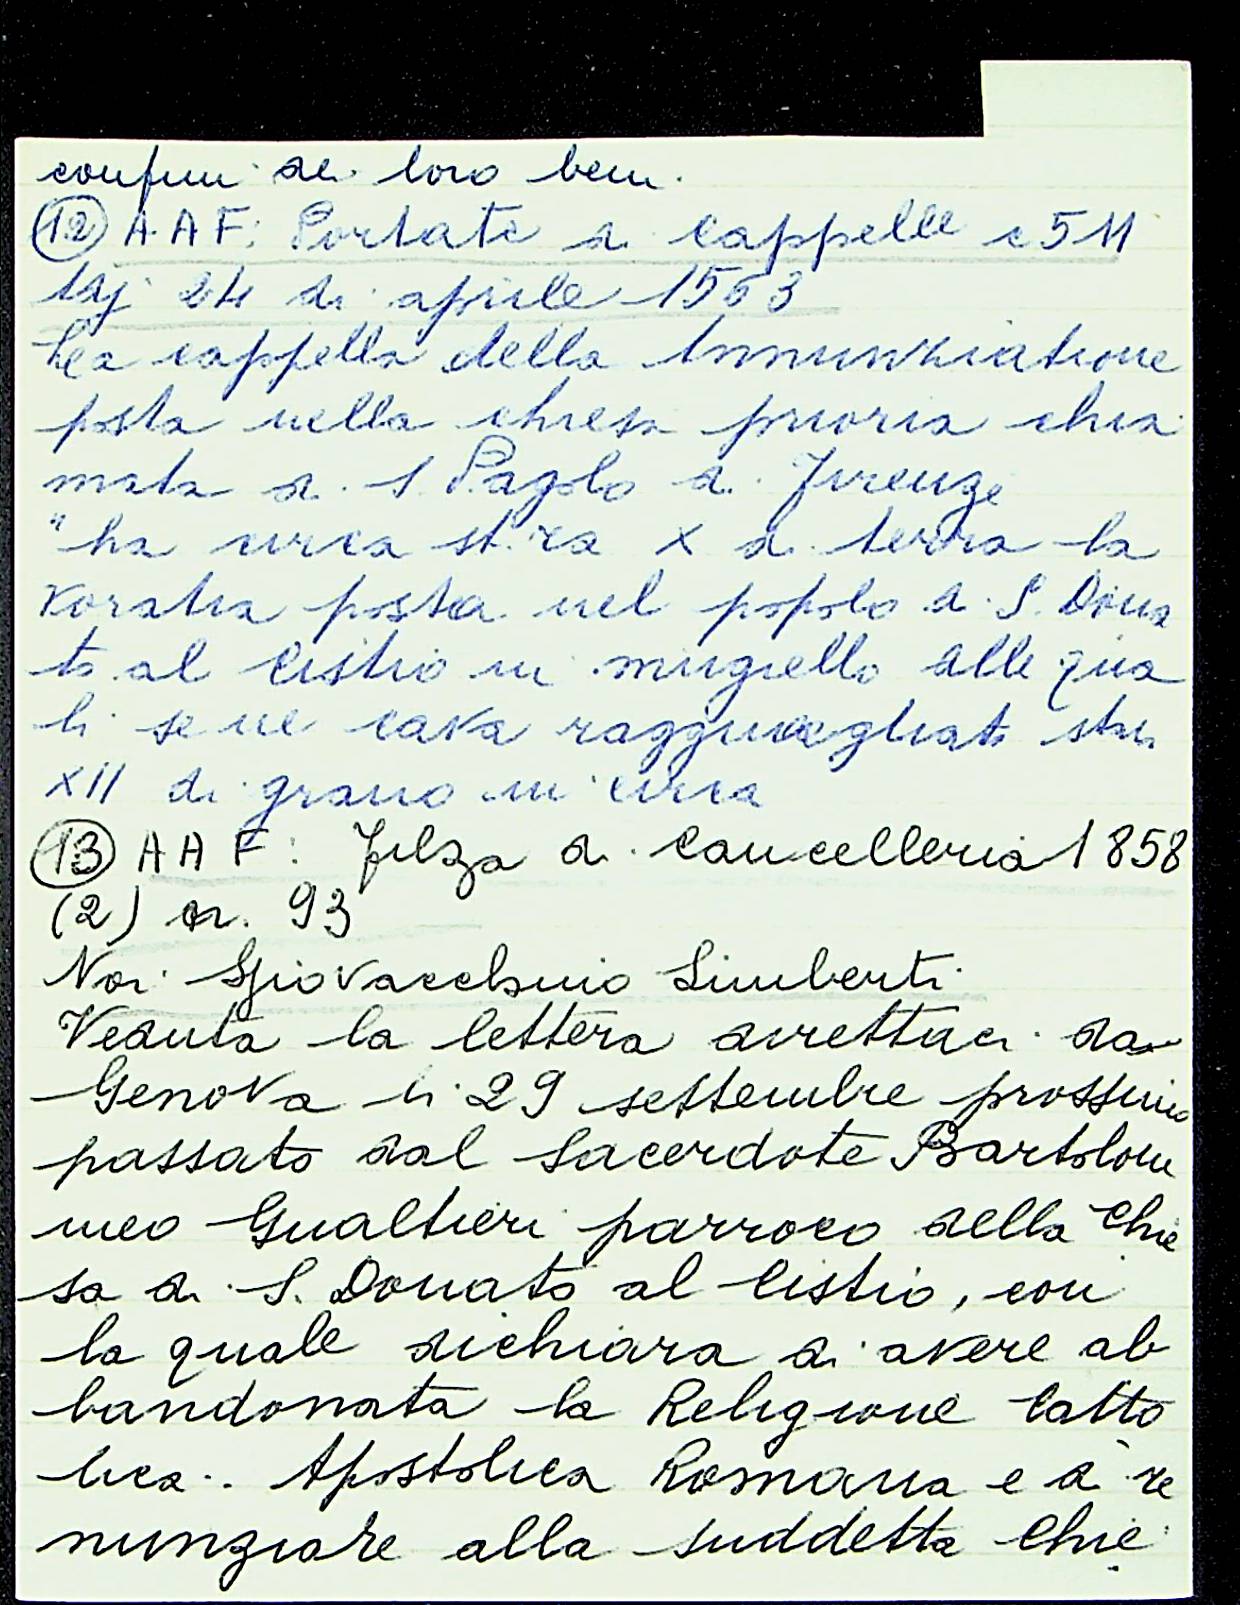 confini dei loro beni.
(12) A.A.F: Portate di cappelle c 511
24 di aprile 1563
La cappella della Annunziatione
posta nella chiesa prioria chia
mata di S. Pagolo di Firenze
"ha circa st.ra X di terra la
voratia posta nel popolo di S. Dona
to al Cistio in mugiello alle qua
li se ne cava ragguagliato staia
XII di grano in circa
(13) A A F: Filza di Cancelleria 1858
(2) n. 93
Noi Giovacchino Limberti
Veduta la lettera direttaci da
Genova li 29 settembre prossimo
passato dal Sacerdote Bartolom
meo Gualtieri parroco della Chie
sa di S. Donato al Cistio, con
la quale dichiara di avere ab
bandonata la Religione Catto
lica. Apostolica Romana e di re
nunziare alla suddetta Chie